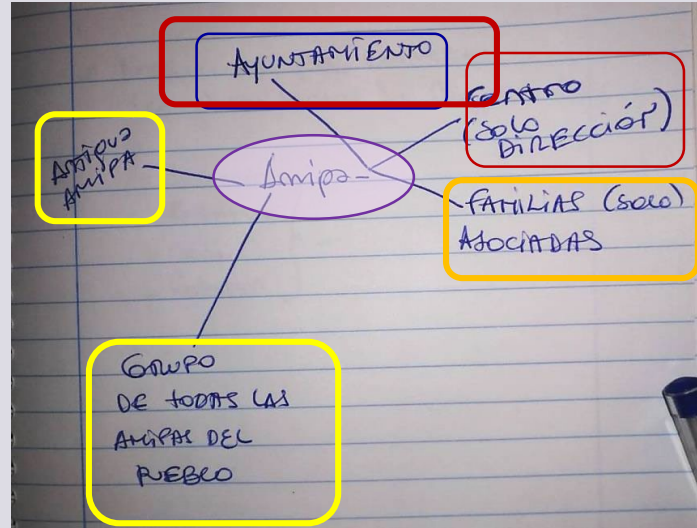 AYUNTAMIENTO
CENTRO
(SOLO
DIRECCIÓN)
ANTIGUA
AMIPA
Amipa-
FAMILIAS (SOLO)
ASOCIADAS
GRUPO
DE TODAS LAS
AMIPAS DEL
PUEBLO